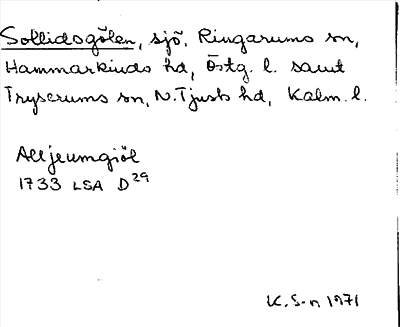 Sollidsgölen, sjö, Ringarums sn,
Hammarkinds hd, Östg. l. samt
Tryserums sn, N. Tjusts hd, Kalm. l.
Alljeumgiöl
1733 LSA D29
K. S-n 1971